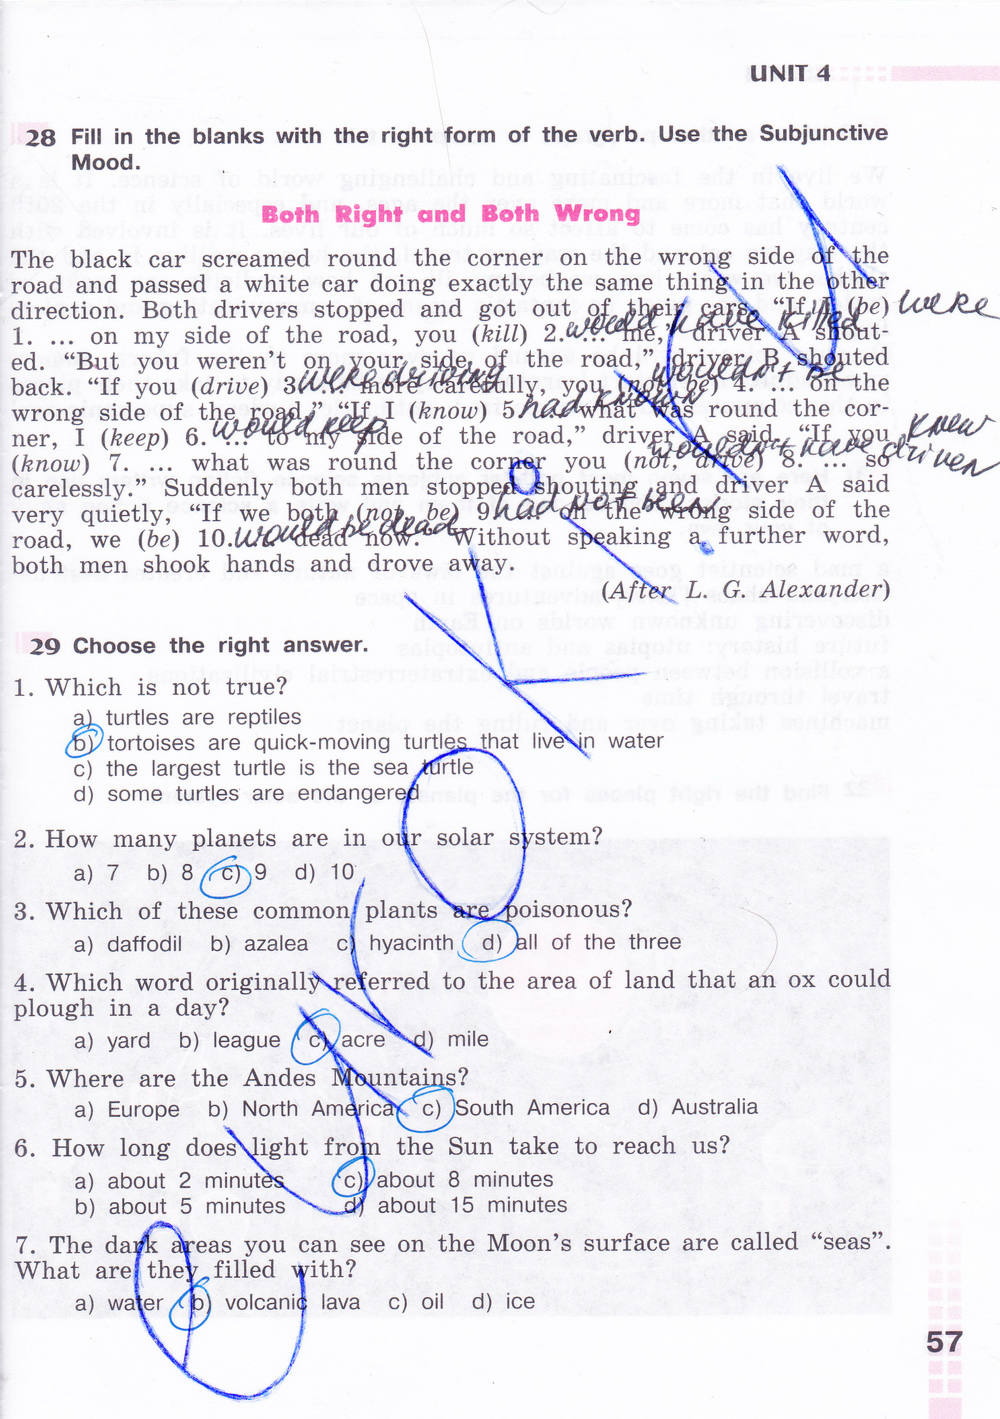 UNIT 4
28 Fill in the blanks with the right form of the verb. Use the Subjunctive
Mood.
Both Right and Both Wrong
The black car screamed round the corner on the wrong side of the
road and passed a white car doing exactly the same thing in the other
direction. Both drivers stopped and got out of their cars. "If I (be) were
1. ... on my side of the road, you (kill) 2. would have killed ... me," driver A shout-
ed. "But you weren't on your side of the road," driver B shouted
back. "If you (drive) 3. were driving ... more carefully, you (not be) 4. wouldn't be ... on the
wrong side of the road." "If I (know) 5. had known ... what was round the cor-
ner, I (keep) 6. would keep ... to my side of the road," driver A said. "If you knew
(know) 7. ... what was round the corner you (not drive) 8. wouldn't have driven ... so
carelessly." Suddenly both men stopped shouting and driver A said
very quietly, "If we both (not be) 9. had not been ... on the wrong side of the
road, we (be) 10. would be dead ... dead now." Without speaking a further word,
both men shook hands and drove away.
(After L. G. Alexander)
29 Choose the right answer.
1. Which is not true?
a) turtles are reptiles
b) tortoises are quick-moving turtles that live in water
c) the largest turtle is the sea turtle
d) some turtles are endangered
2. How many planets are in our solar system?
a) 7 b) 8 c) 9 d) 10
3. Which of these common plants are poisonous?
a) daffodil b) azalea c) hyacinth d) all of the three
4. Which word originally referred to the area of land that an ox could
plough in a day?
a) yard b) league c) acre d) mile
5. Where are the Andes Mountains?
a) Europe b) North America c) South America d) Australia
6. How long does light from the Sun take to reach us?
a) about 2 minutes c) about 8 minutes
b) about 5 minutes d) about 15 minutes
7. The dark areas you can see on the Moon's surface are called "seas".
What are they filled with?
a) water b) volcanic lava c) oil d) ice
57